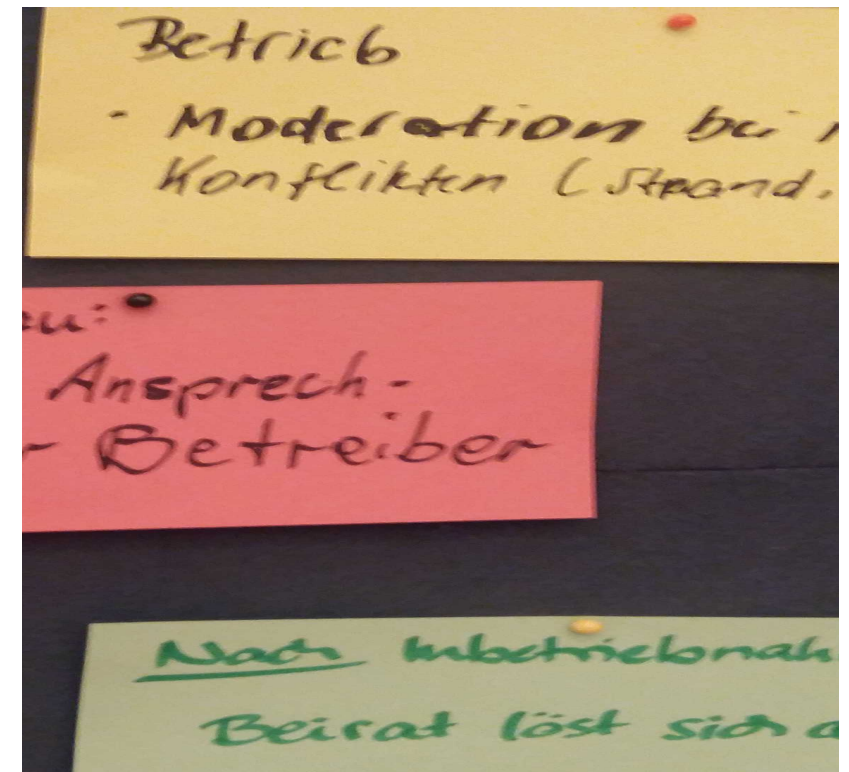 Betrieb
- Moderation bei
Konflikten (Strand.
eu:
Ansprech-
Betreiber
Nach Inbetriebnah
Beirat löst sich a